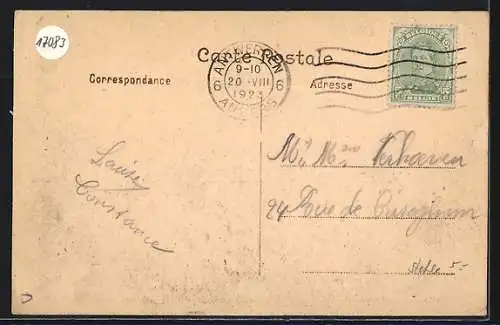 17083
Carte Postale
Correspondance
Adresse
ANTWERPEN
6 6
9-10
20 VIII
1923
ANVERS
BELGIQUE
BELGIË
Louise
Constance
Verhaeven
24 Rue de
5-